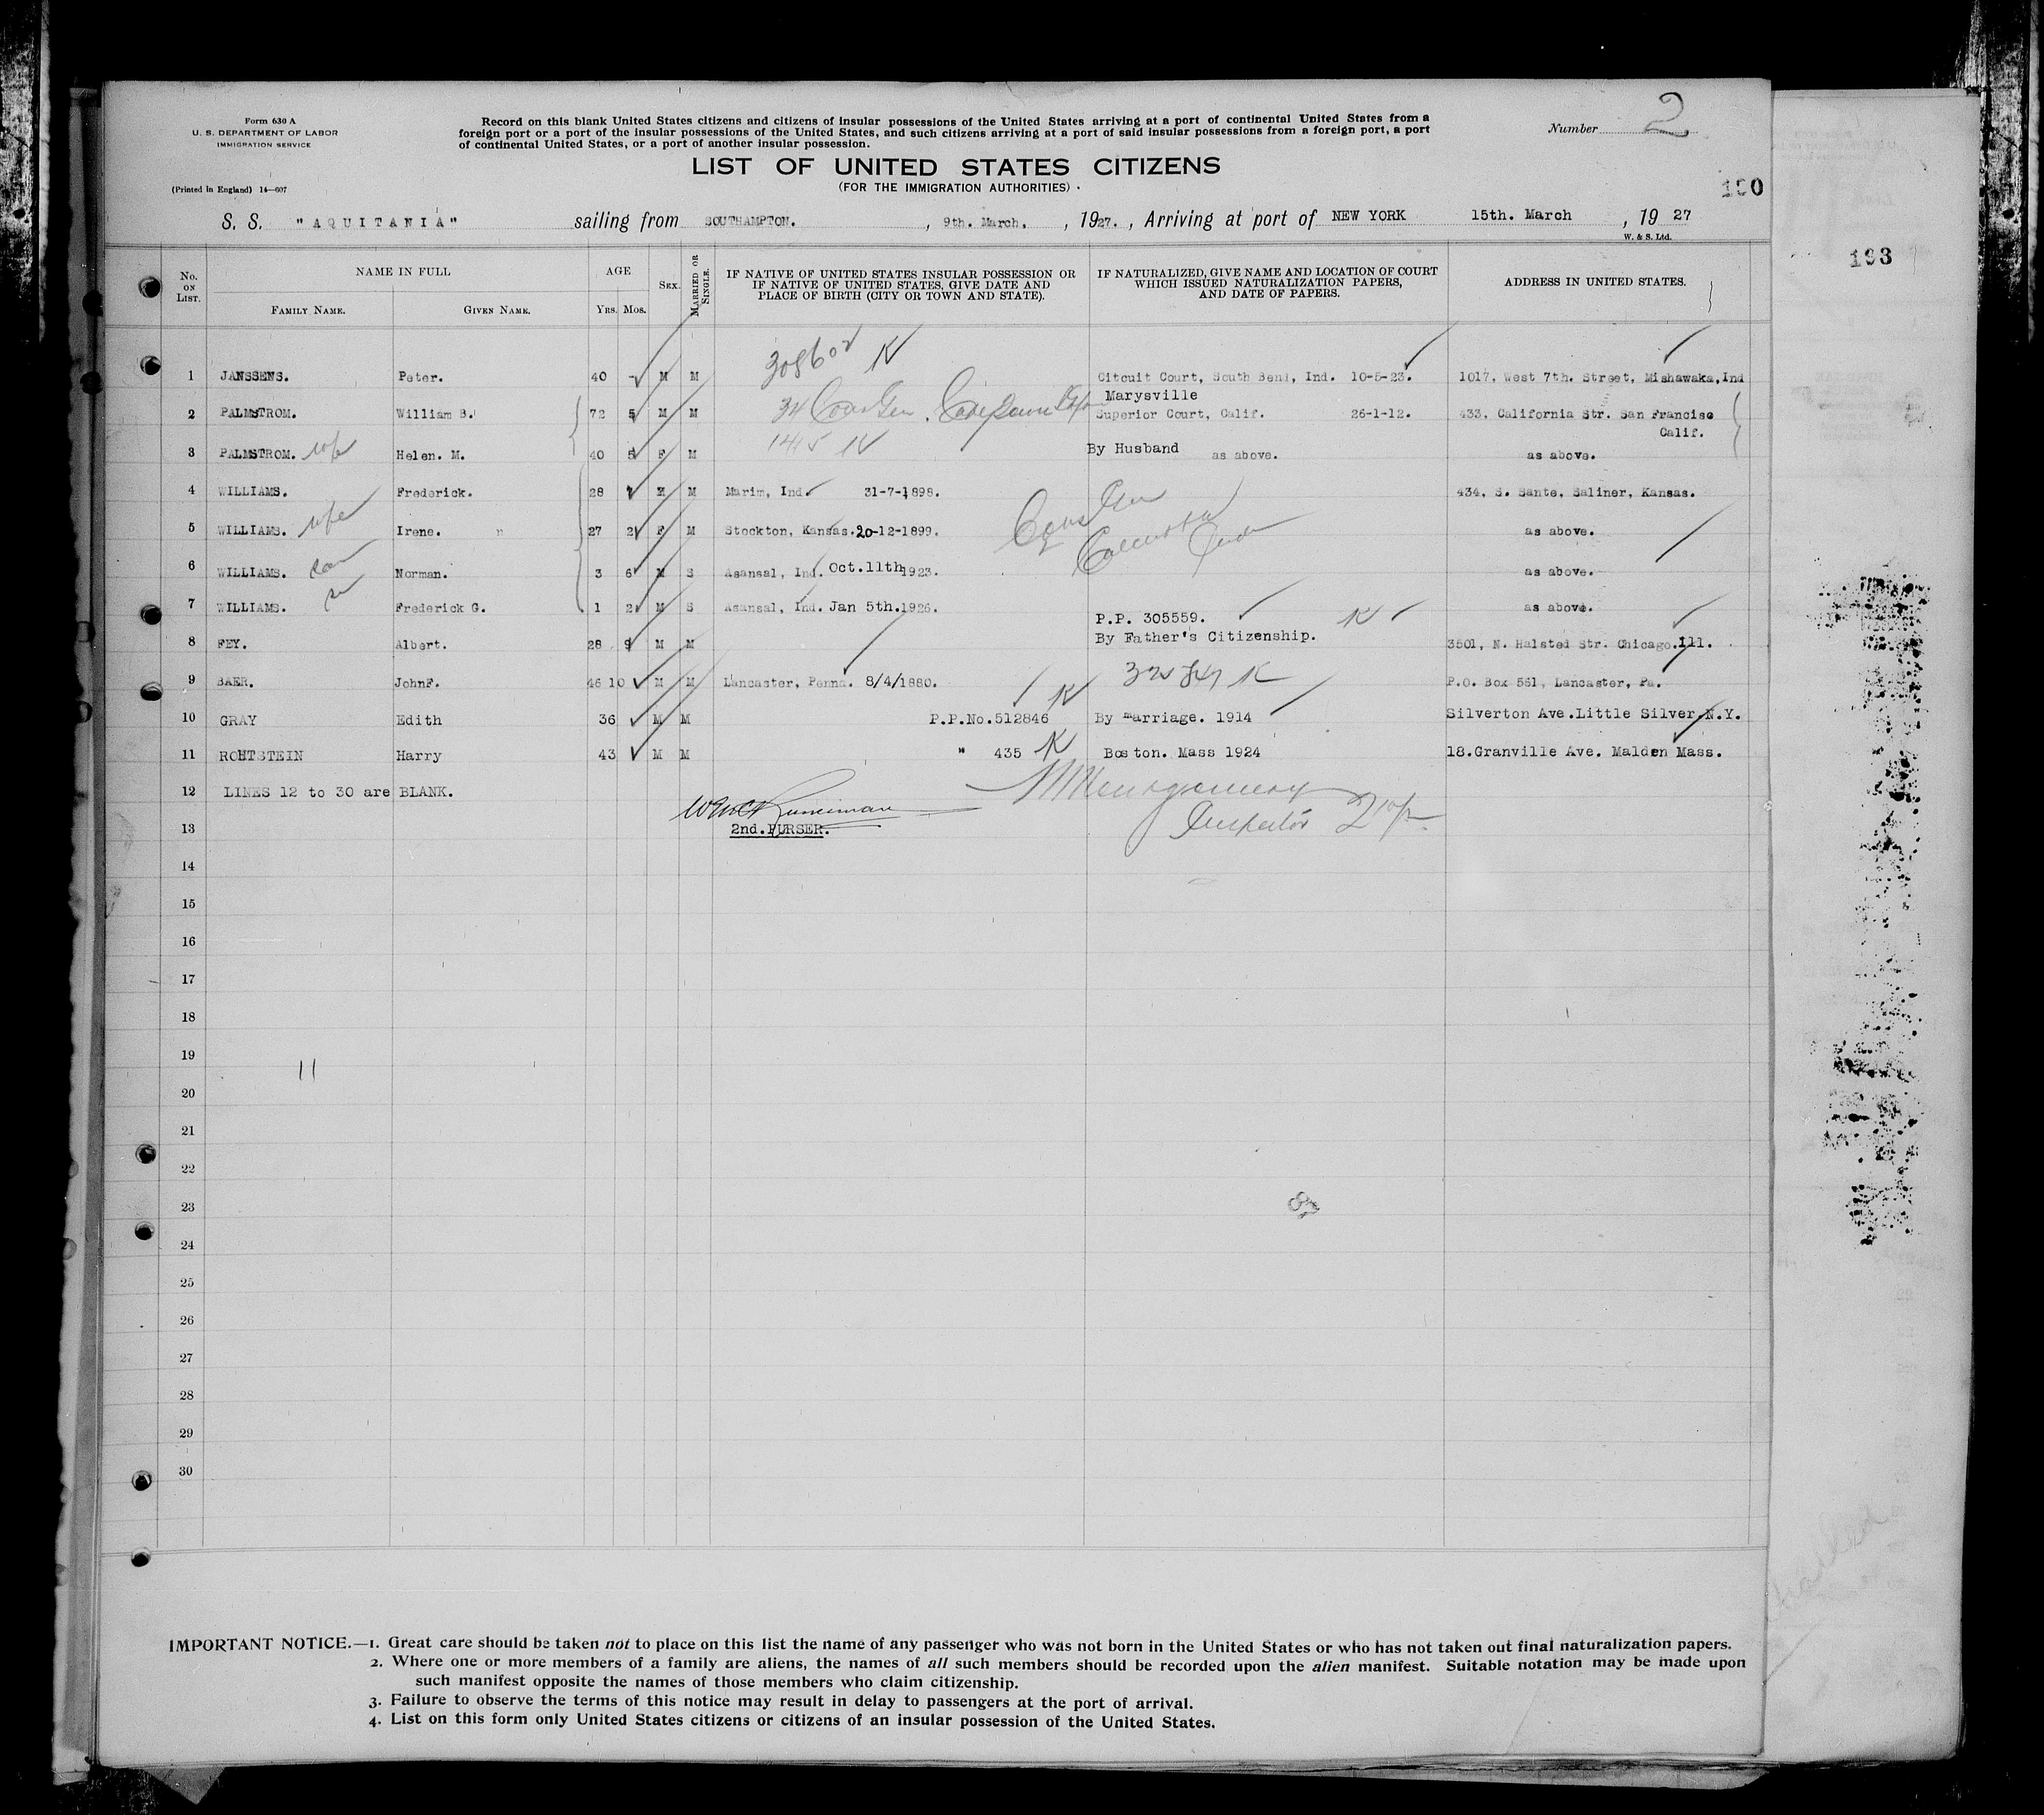 Form 630 A
U. S. DEPARTMENT OF LABOR
IMMIGRATION SERVICE
(Printed in England) 14—607
Record on this blank United States citizens and citizens of insular possessions of the United States arriving at a port of continental United States from a
foreign port or a port of the insular possessions of the United States, and such citizens arriving at a port of said insular possessions from a foreign port, a port
of continental United States, or a port of another insular possession.
Number 2
LIST OF UNITED STATES CITIZENS
(FOR THE IMMIGRATION AUTHORITIES)
S. S. "AQUITANIA" sailing from SOUTHAMPTON. , 9th. March, , 1927. , Arriving at port of NEW YORK 15th. March , 19 27
W. & S. Ltd.
193
No. ON LIST.
NAME IN FULL
FAMILY NAME. GIVEN NAME.
AGE
YRS. MOS.
SEX.
MARRIED OR SINGLE.
IF NATIVE OF UNITED STATES INSULAR POSSESSION OR
IF NATIVE OF UNITED STATES, GIVE DATE AND
PLACE OF BIRTH (CITY OR TOWN AND STATE).
IF NATURALIZED, GIVE NAME AND LOCATION OF COURT
WHICH ISSUED NATURALIZATION PAPERS,
AND DATE OF PAPERS.
ADDRESS IN UNITED STATES.
308602 K
1 JANSSENS. Peter. 40 - M M Citcuit Court, South Bend, Ind. 10-5-23. 1017, West 7th. Street, Mishawaka, Ind
Marysville
2 PALMSTROM. William B. 72 5 M M Superior Court, Calif. 26-1-12. 433, California Str. San Francisc
Calif.
3 PALMSTROM. wife Helen. M. 40 5 F M By Husband as above. as above.
4 WILLIAMS. Frederick. 28 7 M M Marim, Ind. 31-7-1898. 434, S. Sante, Saliner, Kansas.
5 WILLIAMS. wife Irene. 27 2 F M Stockton, Kansas. 20-12-1899. as above.
6 WILLIAMS. son Norman. 3 6 M S Asansal, Ind. Oct. 11th 1923. as above.
7 WILLIAMS. Frederick G. 1 2 M S Asansal, Ind. Jan 5th. 1926. as above.
P.P. 305559. K
8 FEY. Albert. 28 9 M M By Father's Citizenship. 3501, N. Halsted Str. Chicago. Ill.
9 BAER. JohnF. 46 10 M M Lancaster, Penna. 8/4/1880. P.O. Box 561, Lancaster, Pa.
10 GRAY Edith 36 M M P.P.No. 512846 K By marriage. 1914 Silverton Ave. Little Silver, N.Y.
11 ROHTSTEIN Harry 43 M M " 435 K Boston. Mass 1924 18. Granville Ave. Malden Mass.
12 LINES 12 to 30 are BLANK.
Montgomery
Inspector
13 2nd. PURSER.
14
15
16
17
18
19
11
20
21
22
23
24
25
26
27
28
29
30
IMPORTANT NOTICE.—1. Great care should be taken not to place on this list the name of any passenger who was not born in the United States or who has not taken out final naturalization papers.
2. Where one or more members of a family are aliens, the names of all such members should be recorded upon the alien manifest. Suitable notation may be made upon
such manifest opposite the names of those members who claim citizenship.
3. Failure to observe the terms of this notice may result in delay to passengers at the port of arrival.
4. List on this form only United States citizens or citizens of an insular possession of the United States.